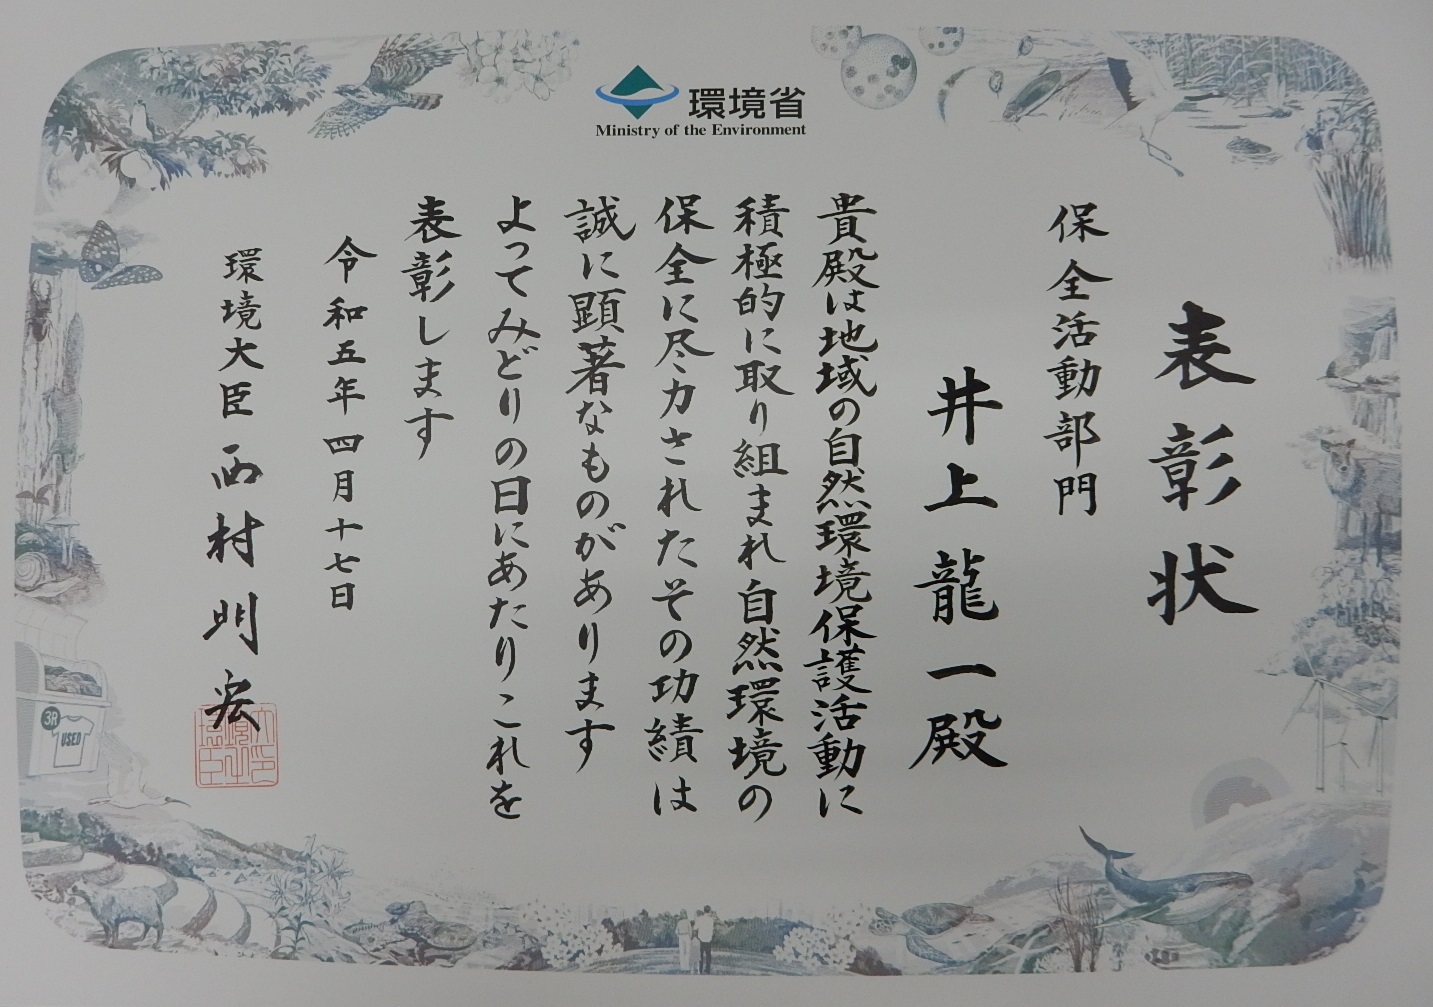 環境省
Ministry of the Environment
表彰状
保全活動部門
井上龍一殿
貴殿は地域の自然環境保護活動に
積極的に取り組まれ自然環境の
保全に尽力されたその功績は
誠に顕著なものがあります
よってみどりの日にあたりこれを
表彰します
令和五年四月十七日
環境大臣 西村明宏
3R
USED